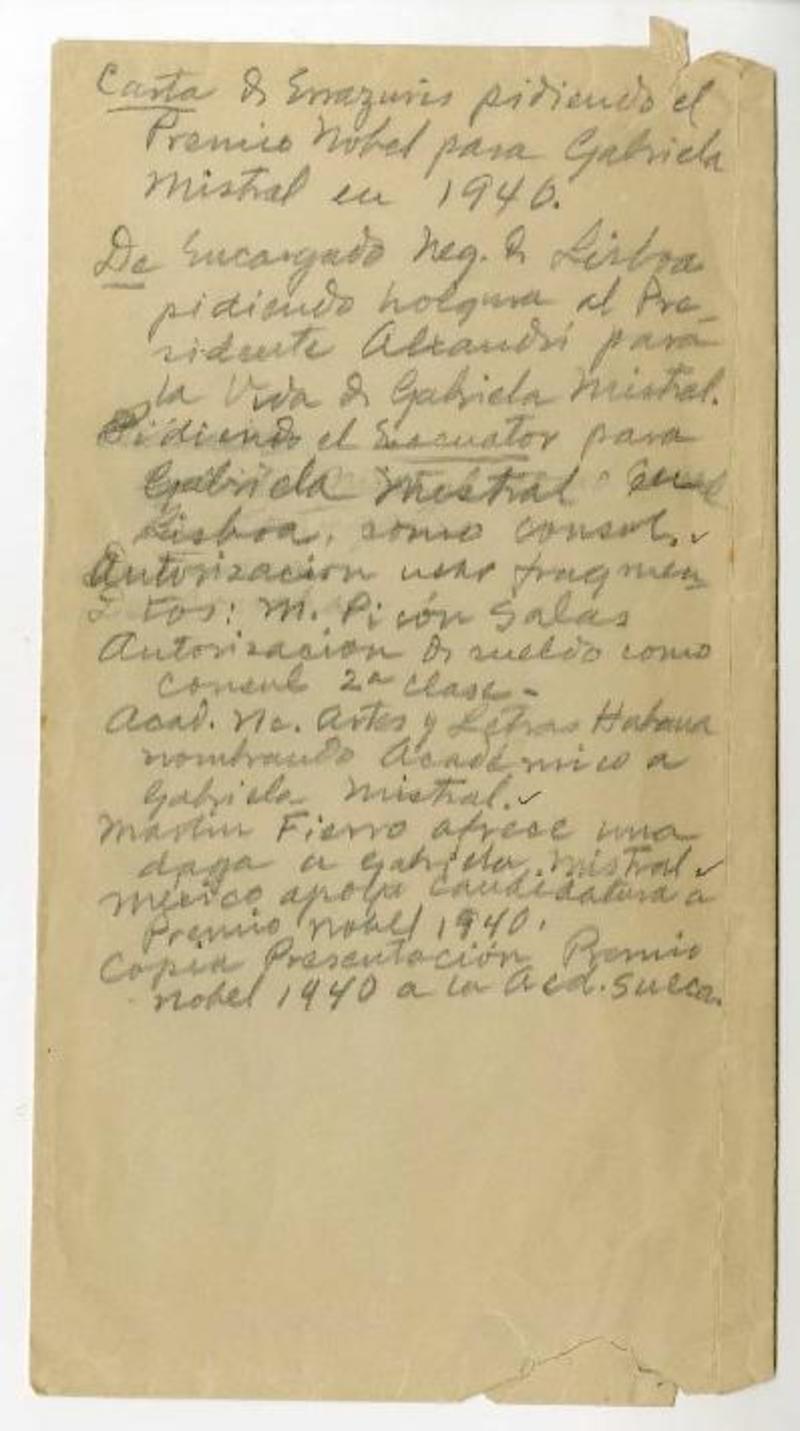 Carta de Errazuris pidiendo el
Premio Nobel para Gabriela
Mistral en 1940.
De Encargado Neg. de Lisboa
pidiendo holgura al Pre-
sidente Alexandri para
la Vida de Gabriela Mistral.
Pidiendo el para
Gabriela Mistral en
Lisboa, como consul. ✓
Autorizacion usar fragmen
tos: M. Picón Salas
Autorisacion de sueldo como
Consul 2ª clase -
Acad. Nc. Artes y Letras Habana
nombrando Académico a
Gabriela Mistral. ✓
Martin Fierro ofrece una
daga a Gabriela Mistral ✓
Mexico apoya candidatura a
Premio Nobel 1940.
Copia Presentación Premio
Nobel 1940 a la Acd. Sueca.